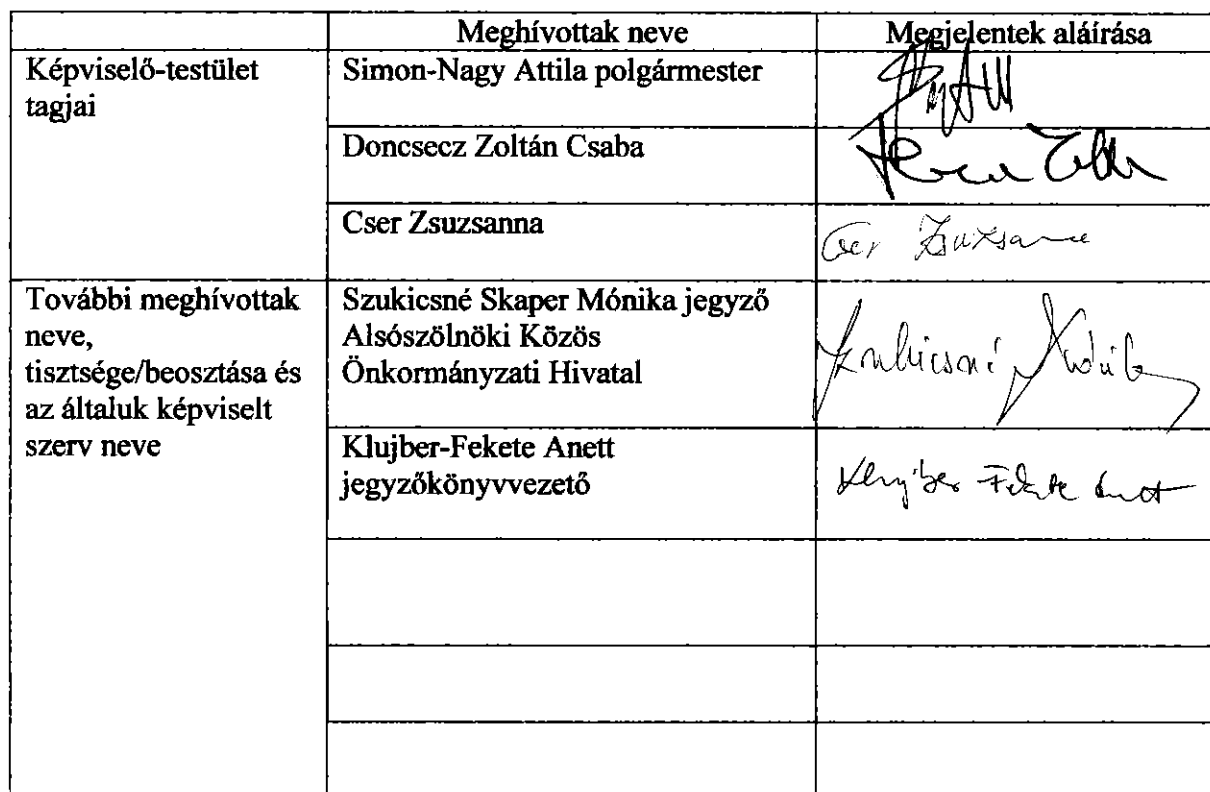 Meghívottak neve Megjelentek aláírása
Képviselő-testület tagjai
Simon-Nagy Attila polgármester
Doncsecz Zoltán Csaba
Cser Zsuzsanna
Cser Zsuzsanna
További meghívottak
neve,
tisztsége/beosztása és
az általuk képviselt
szerv neve
Szukicsné Skaper Mónika jegyző
Alsószölnöki Közös
Önkormányzati Hivatal
Szukicsné Mónika
Klujber-Fekete Anett
jegyzőkönyvvezető
Klujber-Fekete Anett